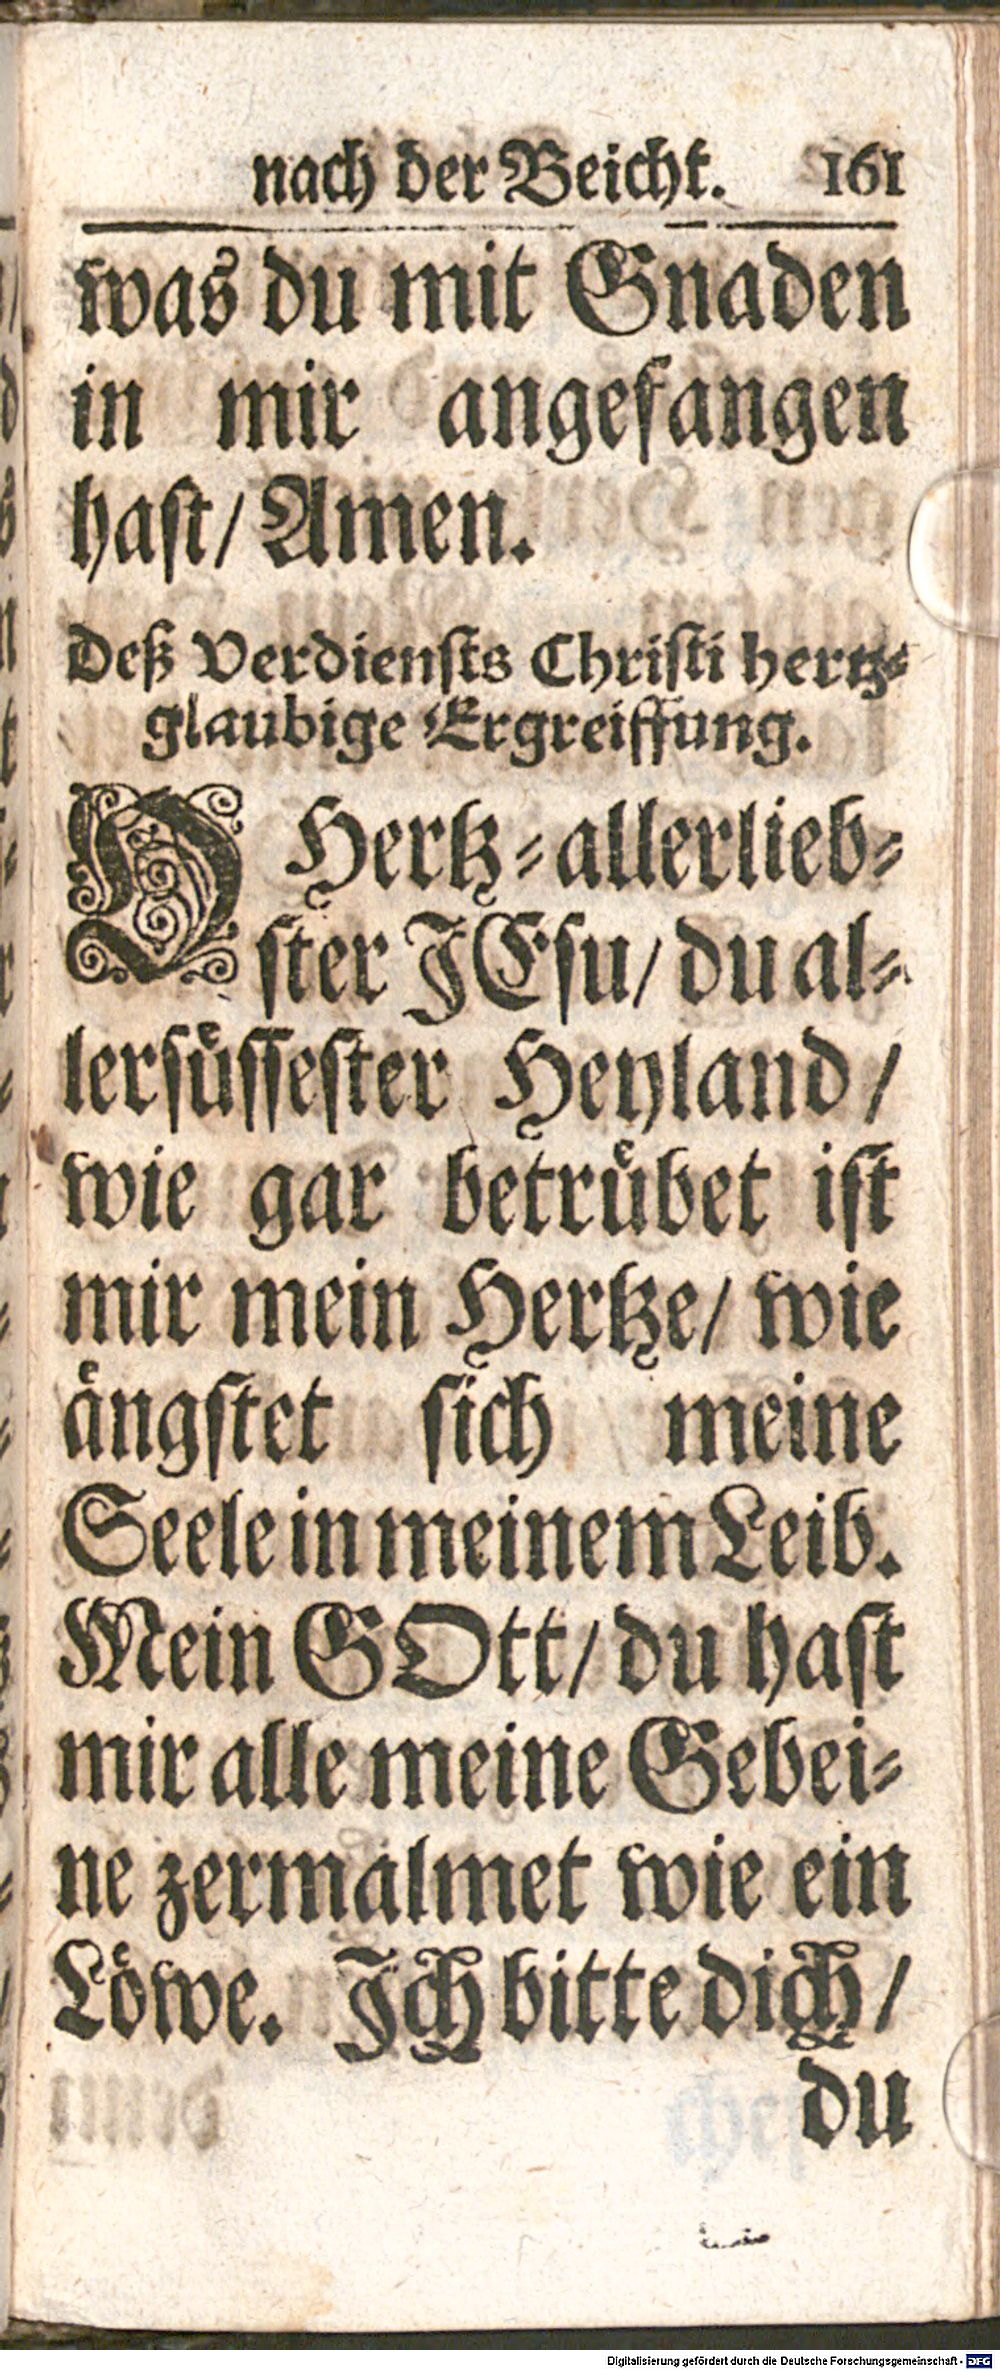 nach der Beicht. 161
was du mit Gnaden
in mir angefangen
hast/ Amen.
Deß Verdiensts Christi hertz-
glaubige Ergreiffung.
O Hertz-allerlieb-
ster JEsu/ du al-
lersüssester Heyland/
wie gar betrübet ist
mir mein Hertze/ wie
ängstet sich meine
Seele in meinem Leib.
Mein GOtt/ du hast
mir alle meine Gebei-
ne zermalmet wie ein
Löwe. Jch bitte dich/
du
Digitalisierung gefördert durch die Deutsche Forschungsgemeinschaft - DFG